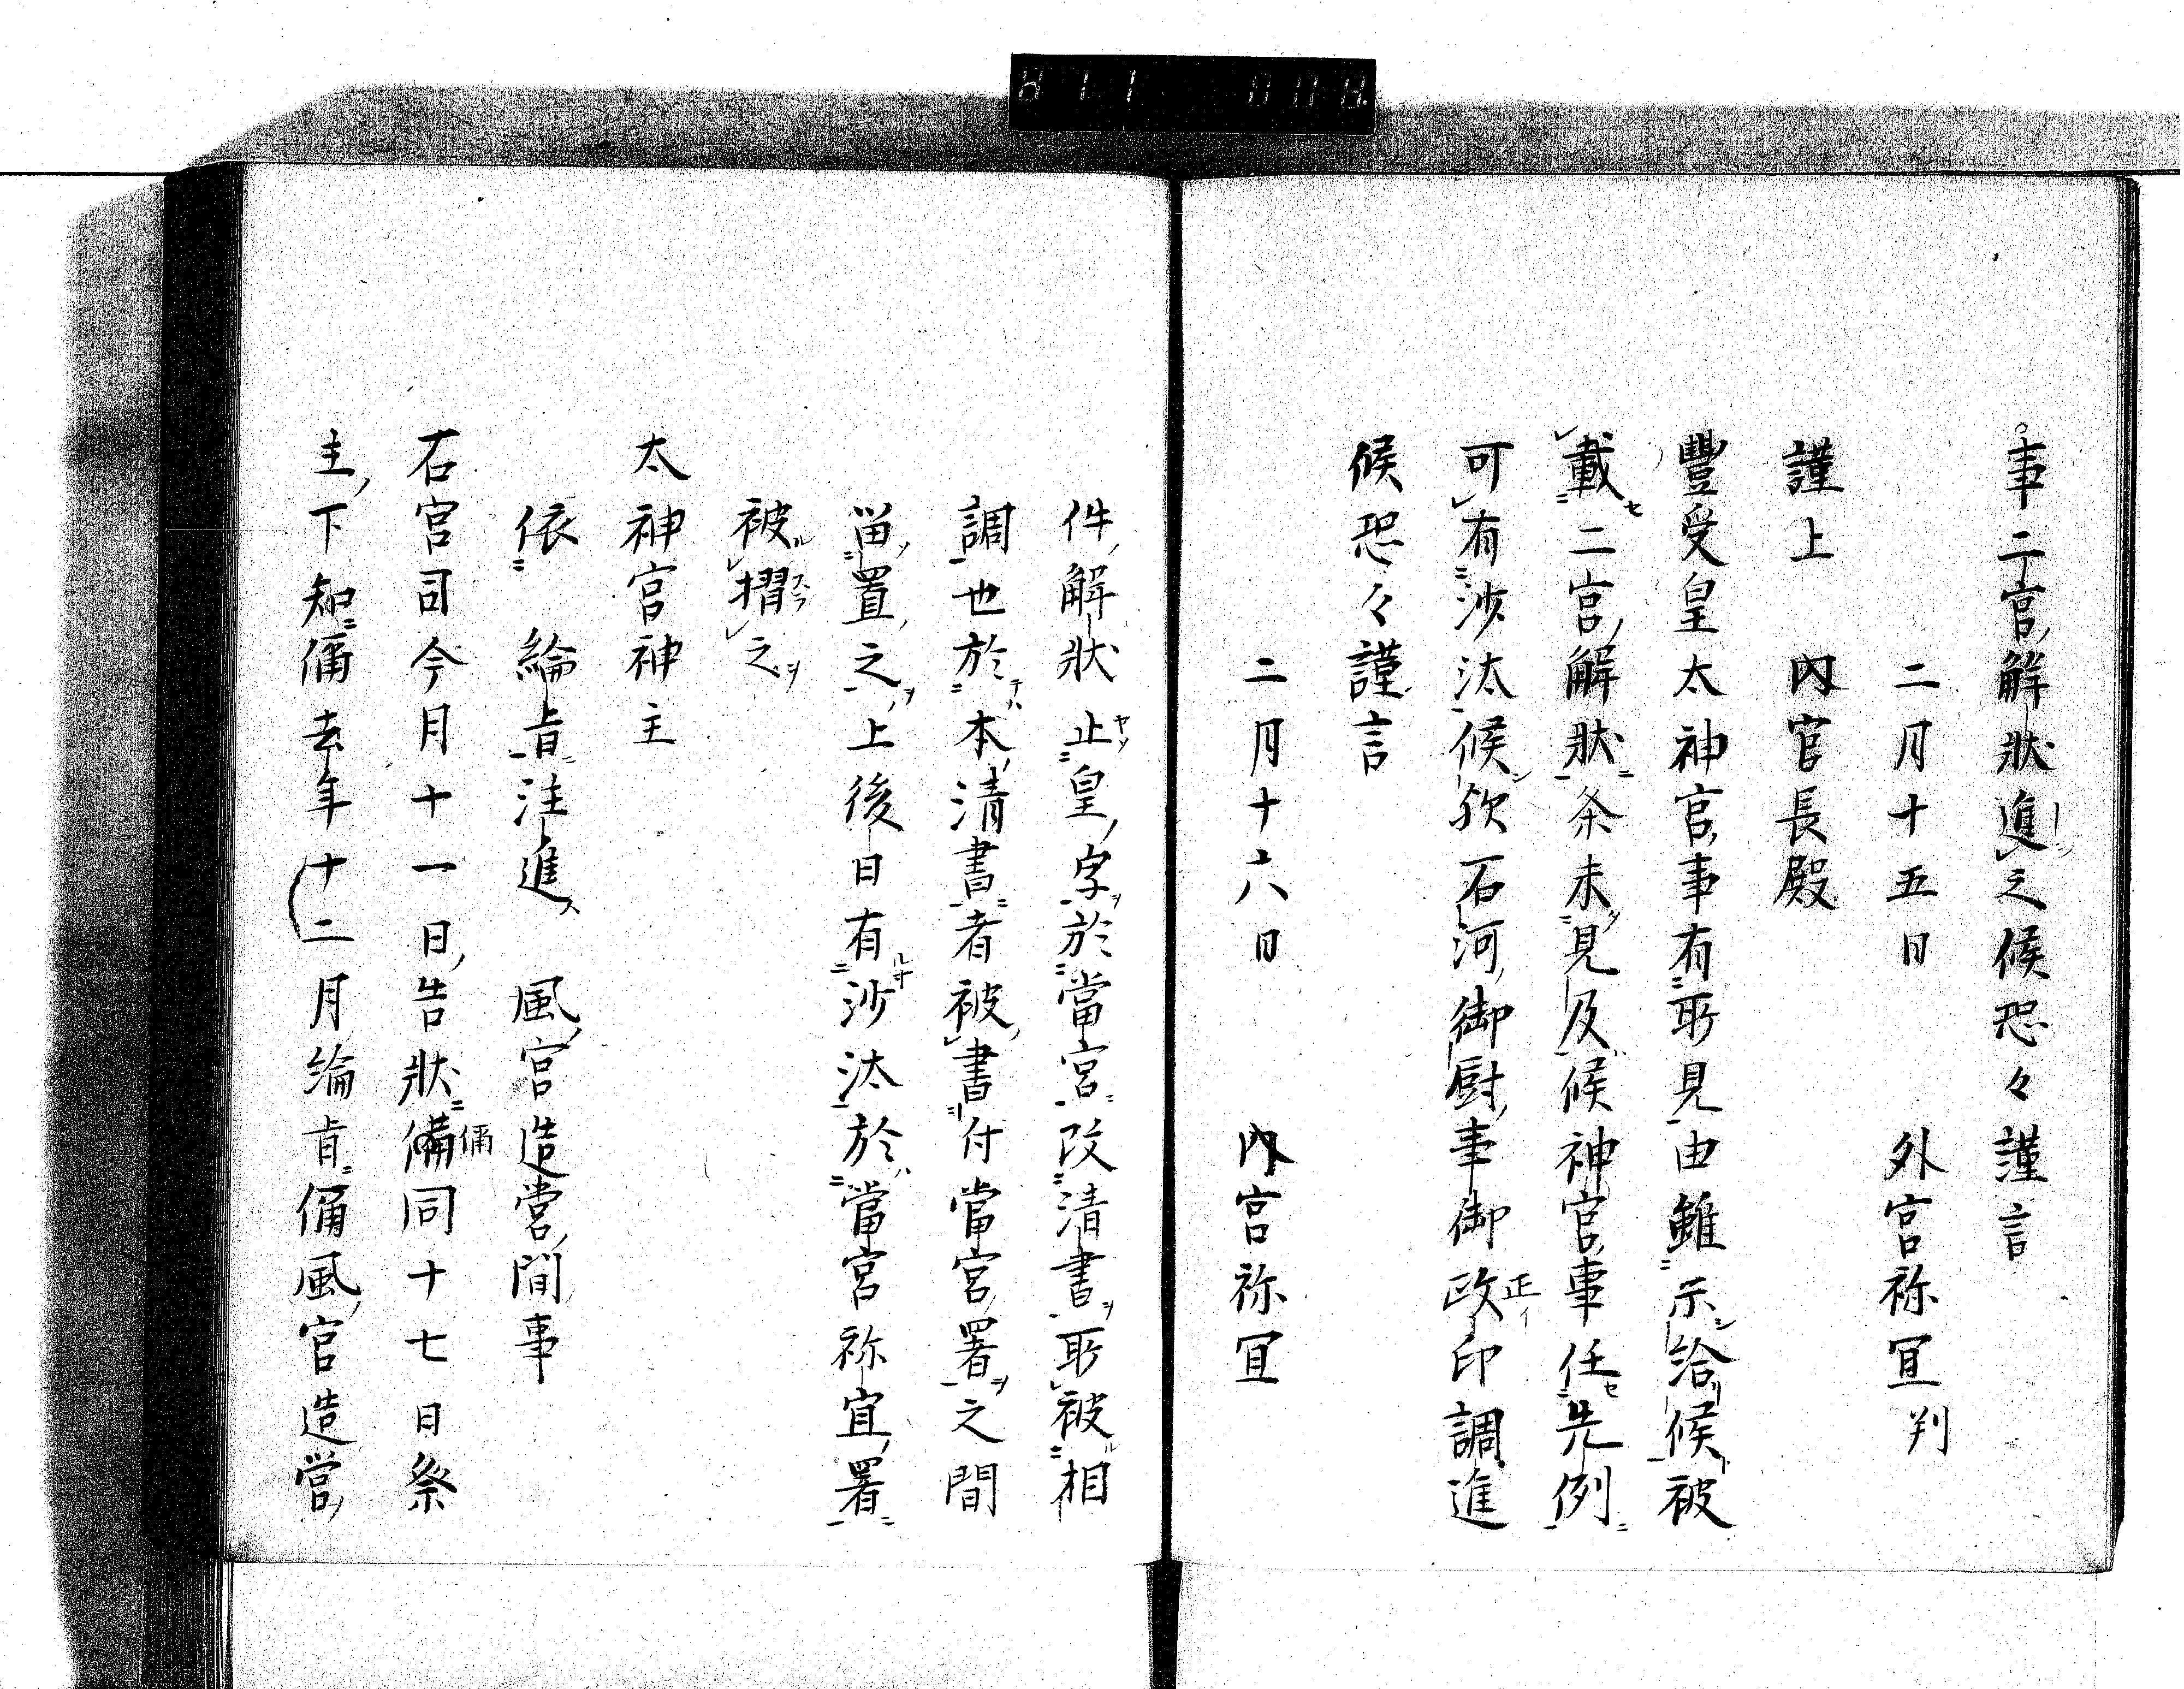 事二宮解狀進之候恐々謹言
二月十五日　外宮祢冝判
謹上　內官長殿
豐受皇太神宮事有所見由雖示給候被
載二宮解狀条未見及候神宮事任先例
可有沙汰候欤石河御厨事御政印調進
候恐々謹言
二月十六日　內宮祢冝
件解狀止皇字於當宮改清書所被相
調也於本清書者被書付當宮署之間
畄置之上後日有沙汰於當宮祢宜署
被摺之
太神宮神主
依　綸旨注進　風宮造営間事
右宮司今月十一日告狀備同十七日祭
主下知偁去年十二月綸旨偁風宮造営